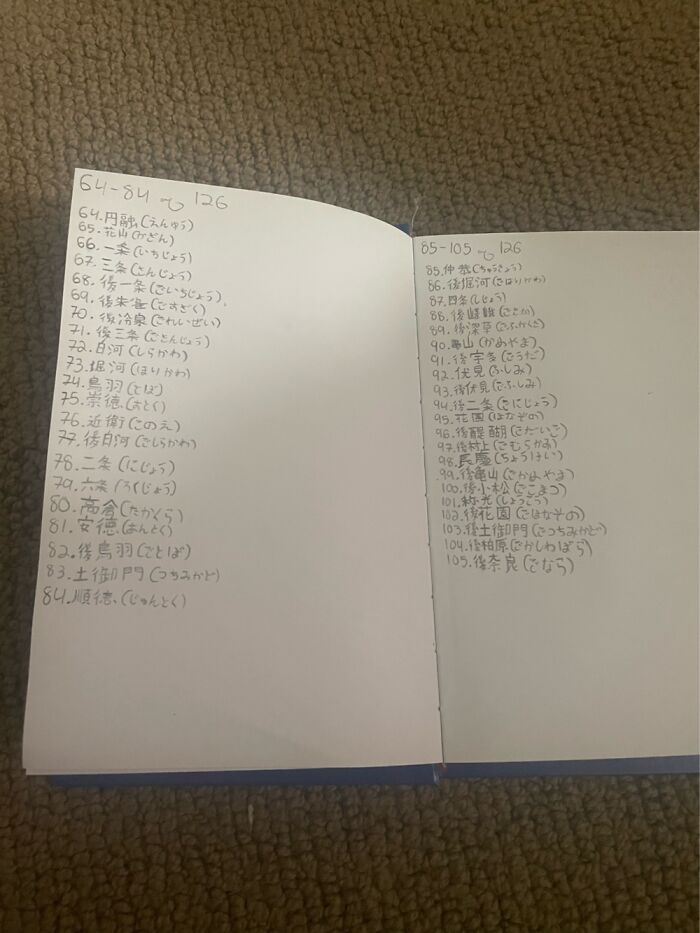 64-84 ~ 126
64.円融(えんゆう)
65.花山(かざん)
66.一条(いちじょう)
67.三条(さんじょう)
68.後一条(ごいちじょう)
69.後朱雀(ごすざく)
70.後冷泉(ごれいぜい)
71.後三条(ごさんじょう)
72.白河(しらかわ)
73.堀河(ほりかわ)
74.鳥羽(とば)
75.崇徳(すとく)
76.近衛(このえ)
77.後白河(ごしらかわ)
78.二条(にじょう)
79.六条(ろくじょう)
80.高倉(たかくら)
81.安徳(あんとく)
82.後鳥羽(ごとば)
83.土御門(つちみかど)
84.順徳(じゅんとく)
85-105 ~ 126
85.仲恭(ちゅうきょう)
86.後堀河(ごほりかわ)
87.四条(しじょう)
88.後嵯峨(ごさが)
89.後深草(ごふかくさ)
90.亀山(かめやま)
91.後宇多(ごうだ)
92.伏見(ふしみ)
93.後伏見(ごふしみ)
94.後二条(ごにじょう)
95.花園(はなぞの)
96.後醍醐(ごだいご)
97.後村上(ごむらかみ)
98.長慶(ちょうけい)
99.後亀山(ごかめやま)
100.後小松(ごこまつ)
101.称光(しょうこう)
102.後花園(ごはなその)
103.後土御門(ごつちみかど)
104.後柏原(ごかしわばら)
105.後奈良(ごなら)